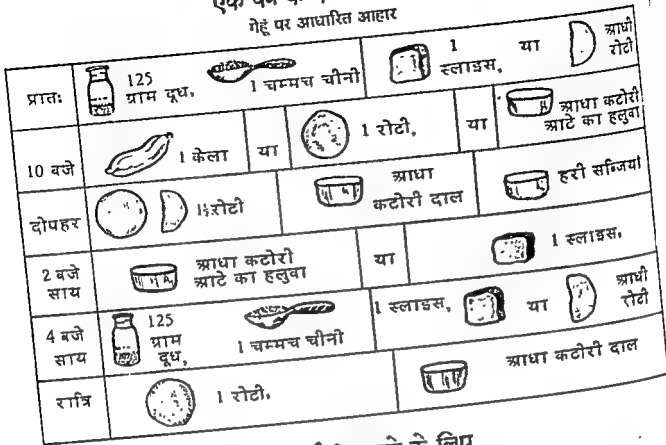 एक
गेहूं पर आधारित आहार
प्रातः 125 ग्राम दूध, 1 चम्मच चीनी 1 स्लाइस, या आधी रोटी
10 बजे 1 केला या 1 रोटी, या आधा कटोरी आटे का हलुवा
दोपहर 1½ रोटी आधा कटोरी दाल हरी सब्जियां
2 बजे साय आधा कटोरी आटे का हलुवा या 1 स्लाइस,
4 बजे साय 125 ग्राम दूध, 1 चम्मच चीनी 1 स्लाइस, या आधी रोटी
रात्रि 1 रोटी, आधा कटोरी दाल
के लिए